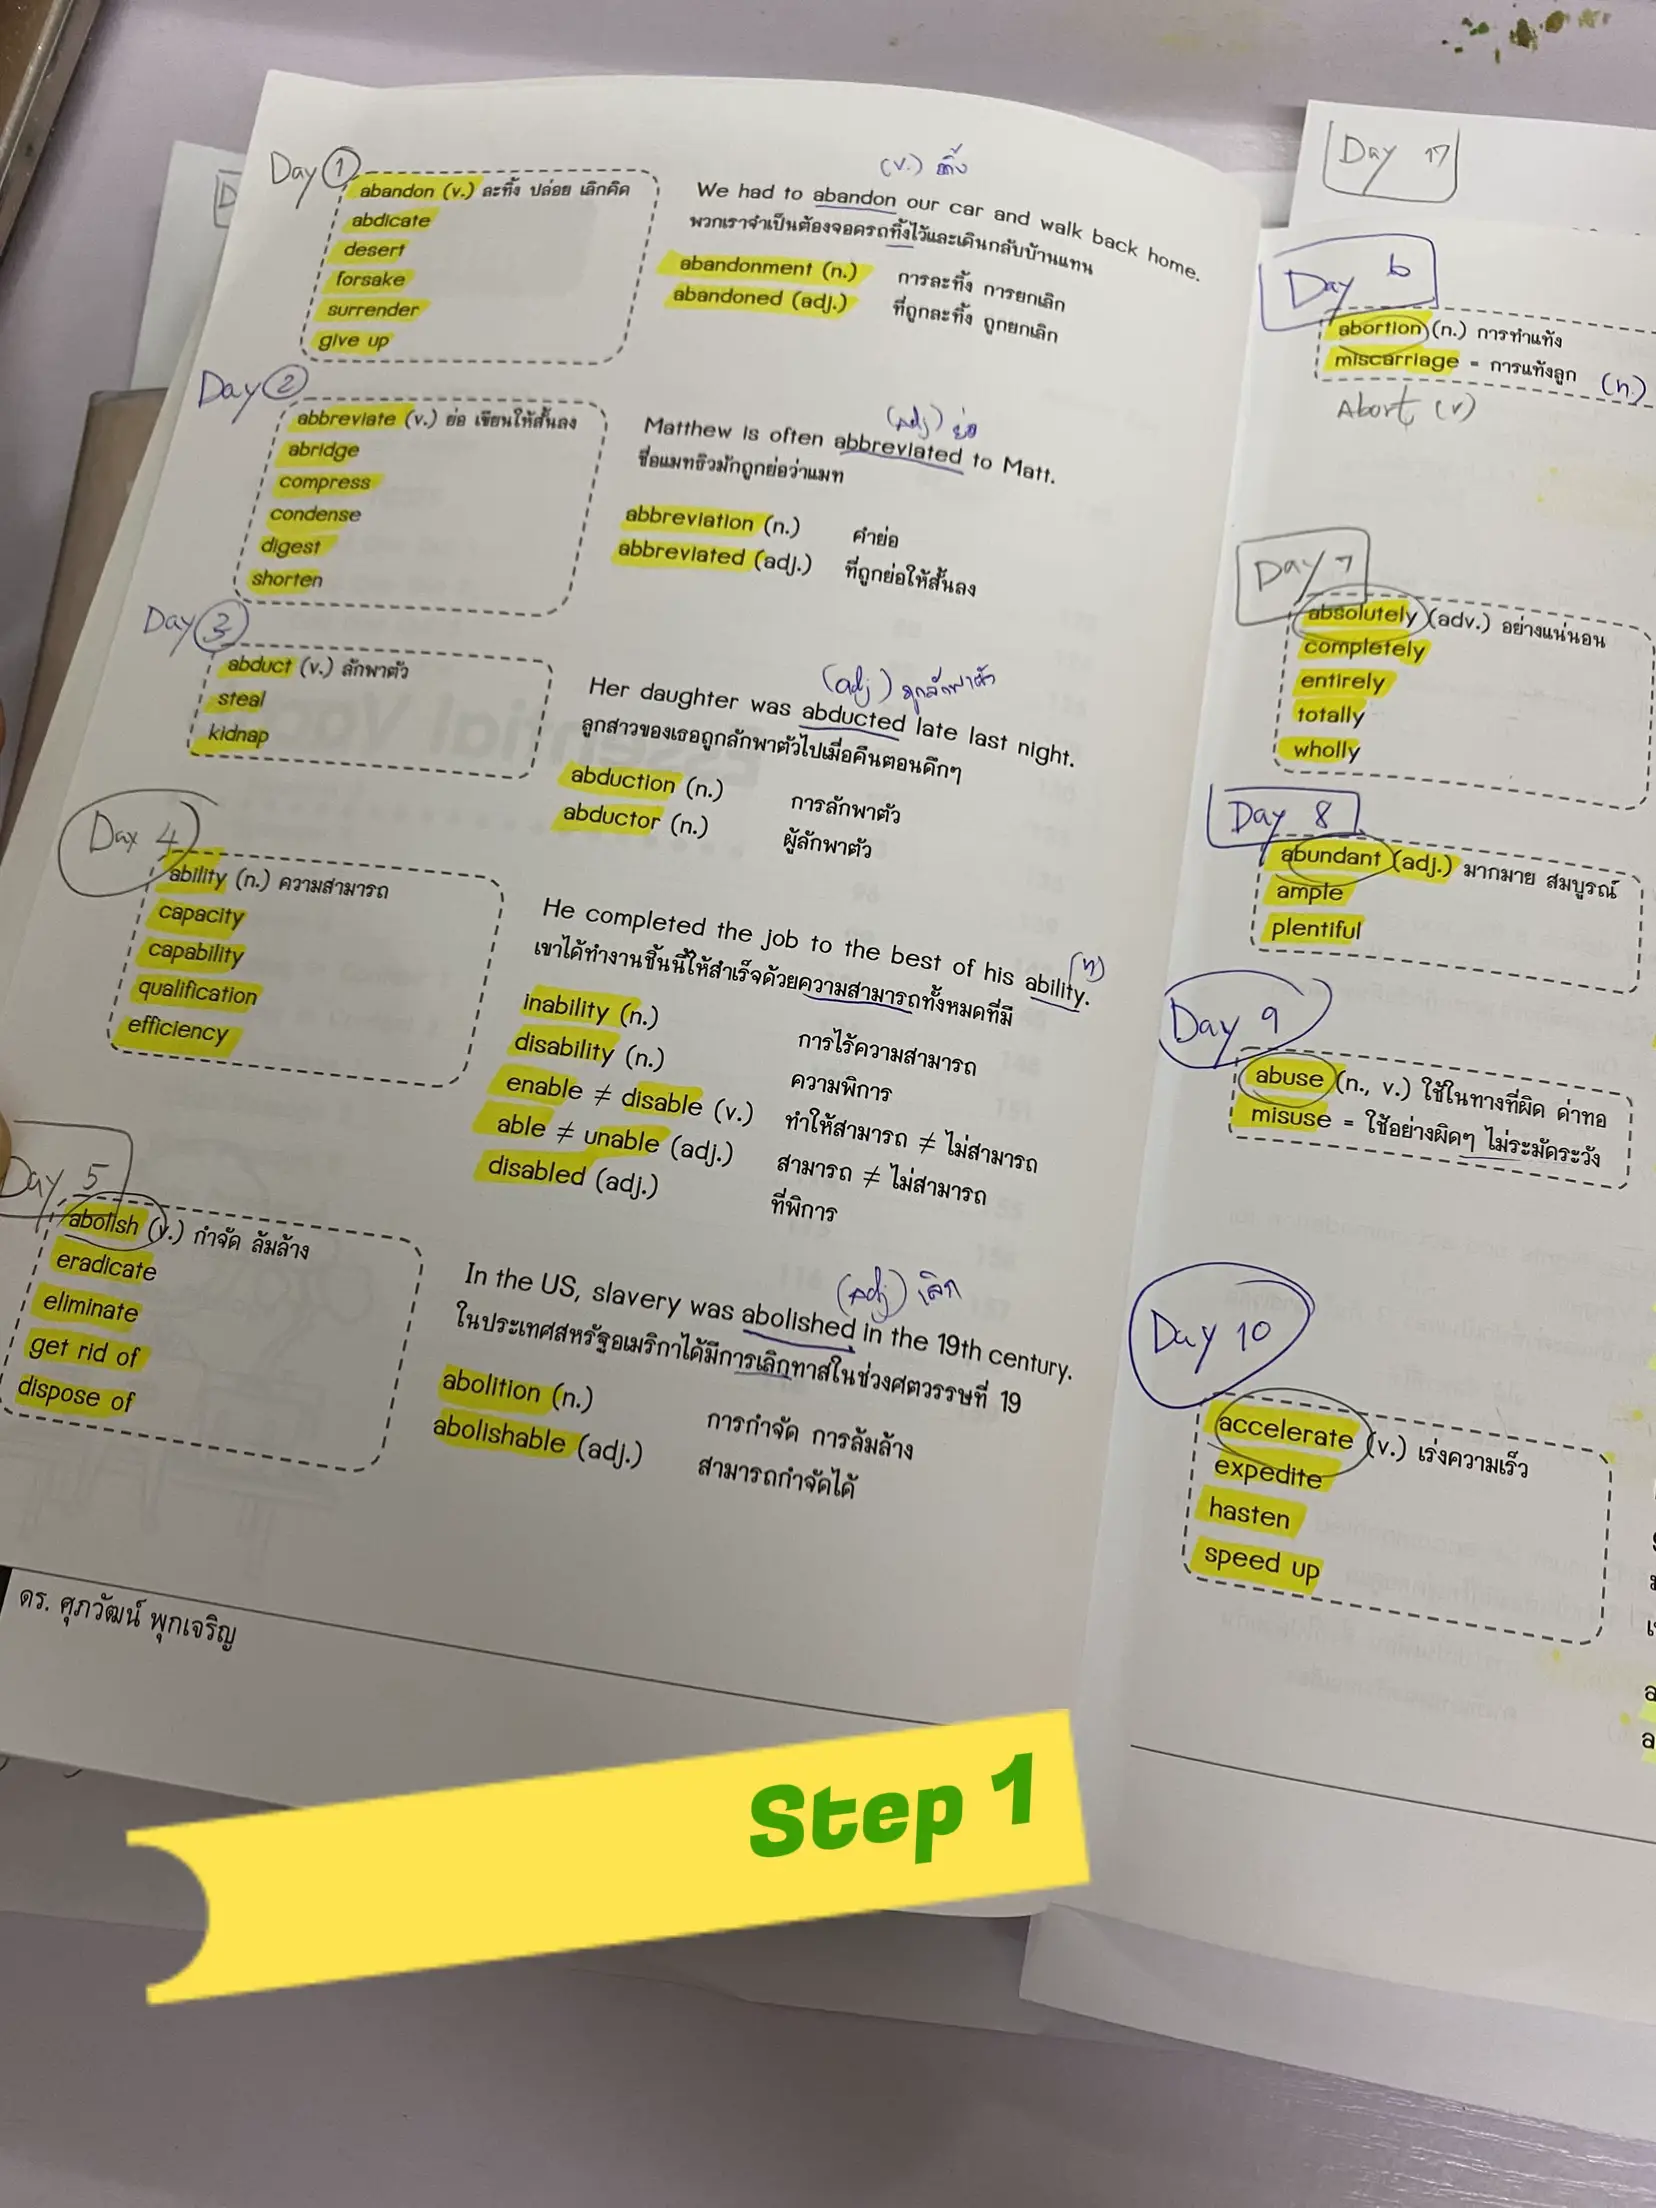 Day 1
abandon (v.) ละทิ้ง ปล่อย เลิกคิด
abdicate
desert
forsake
surrender
give up
(v.) ทิ้ง
We had to abandon our car and walk back home.
พวกเราจำเป็นต้องจอดรถทิ้งไว้และเดินกลับบ้านแทน
abandonment (n.) การละทิ้ง การยกเลิก
abandoned (adj.) ที่ถูกละทิ้ง ถูกยกเลิก
Day 2
abbreviate (v.) ย่อ เขียนให้สั้นลง
abridge
compress
condense
digest
shorten
(adj) ย่อ
Matthew is often abbreviated to Matt.
ชื่อแมทธิวมักถูกย่อว่าแมท
abbreviation (n.) คำย่อ
abbreviated (adj.) ที่ถูกย่อให้สั้นลง
Day 3
abduct (v.) ลักพาตัว
steal
kidnap
(adj) ถูกลักพาตัว
Her daughter was abducted late last night.
ลูกสาวของเธอถูกลักพาตัวไปเมื่อคืนตอนดึกๆ
abduction (n.) การลักพาตัว
abductor (n.) ผู้ลักพาตัว
Day 4
ability (n.) ความสามารถ
capacity
capability
qualification
efficiency
(n)
He completed the job to the best of his ability.
เขาได้ทำงานชิ้นนี้ให้สำเร็จด้วยความสามารถทั้งหมดที่มี
inability (n.) การไร้ความสามารถ
disability (n.) ความพิการ
enable ≠ disable (v.) ทำให้สามารถ ≠ ไม่สามารถ
able ≠ unable (adj.) สามารถ ≠ ไม่สามารถ
disabled (adj.) ที่พิการ
Day 5
abolish (v.) กำจัด ล้มล้าง
eradicate
eliminate
get rid of
dispose of
(adj) เลิก
In the US, slavery was abolished in the 19th century.
ในประเทศสหรัฐอเมริกาได้มีการเลิกทาสในช่วงศตวรรษที่ 19
abolition (n.) การกำจัด การล้มล้าง
abolishable (adj.) สามารถกำจัดได้
ดร. ศุภวัฒน์ พุกเจริญ
Day 17
Day 6
abortion (n.) การทำแท้ง
miscarriage = การแท้งลูก (n.)
Abort (v)
Day 7
absolutely (adv.) อย่างแน่นอน
completely
entirely
totally
wholly
Day 8
abundant (adj.) มากมาย สมบูรณ์
ample
plentiful
Day 9
abuse (n., v.) ใช้ในทางที่ผิด ด่าทอ
misuse = ใช้อย่างผิดๆ ไม่ระมัดระวัง
Day 10
accelerate (v.) เร่งความเร็ว
expedite
hasten
speed up
Step 1